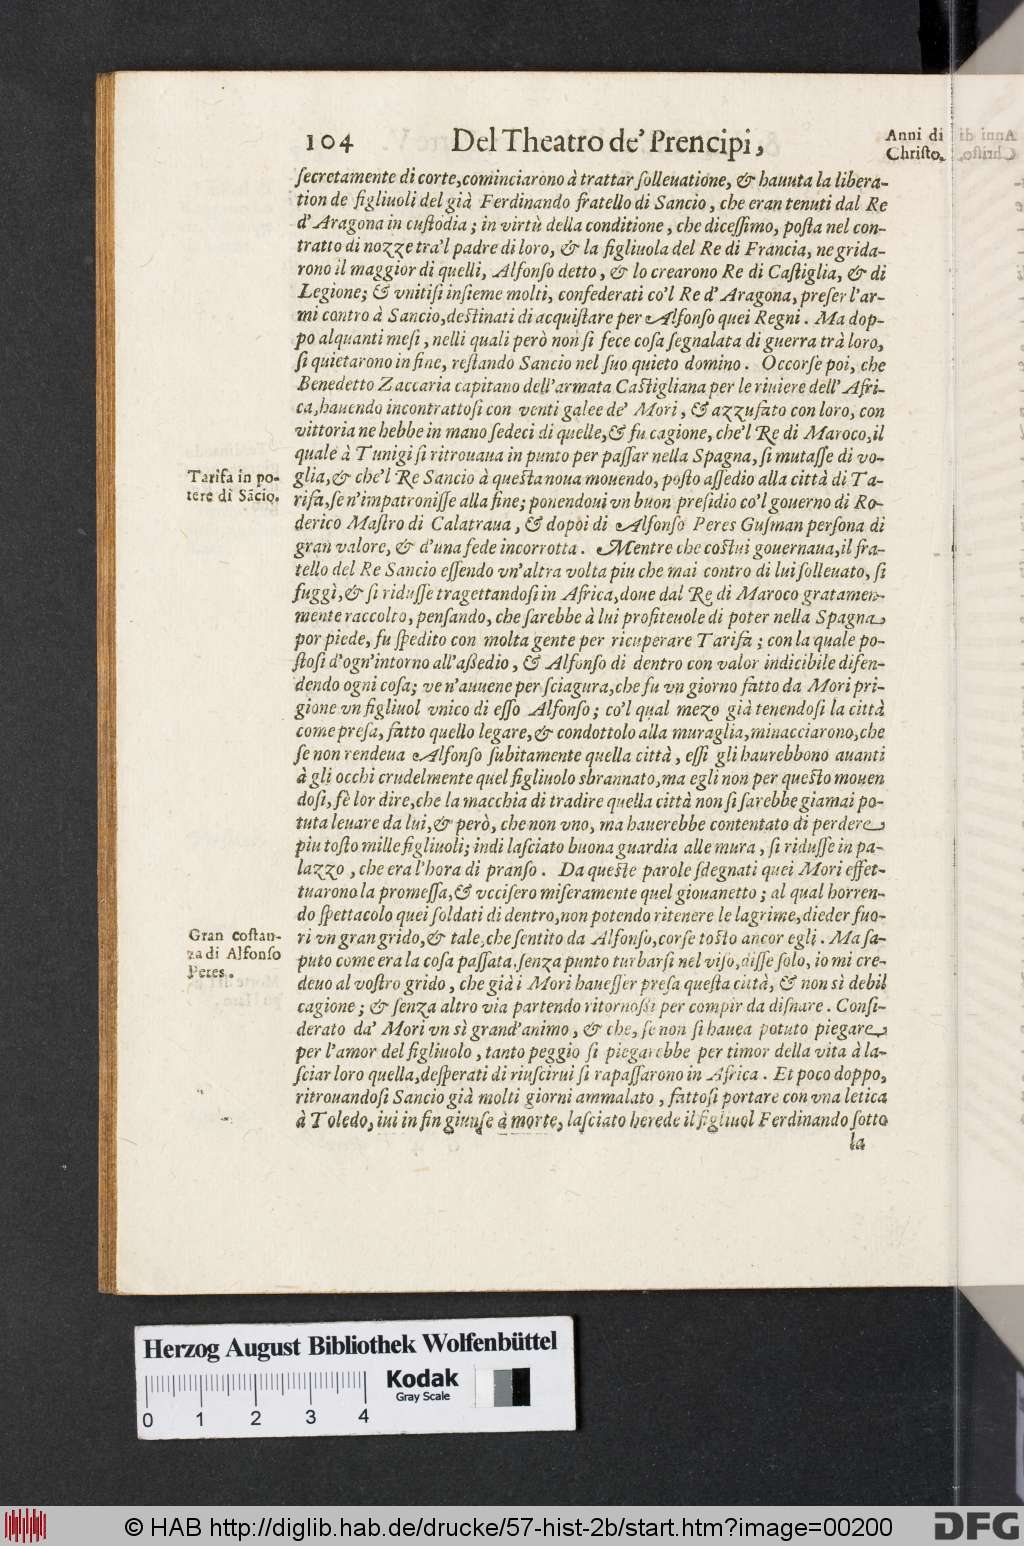 104 Del Theatro de' Prencipi,
Anni di
Christo.
secretamente di corte,cominciarono à trattar solleuatione, & hauuta la libera-
tion de figliuoli del già Ferdinando fratello di Sancio, che eran tenuti dal Re
d'Aragona in custodia; in virtù della conditione, che dicessimo, posta nel con-
tratto di nozze tra'l padre di loro, & la figliuola del Re di Francia, ne grida-
rono il maggior di quelli, Alfonso detto, & lo crearono Re di Castiglia, & di
Legione; & vnitisi insieme molti, confederati co'l Re d'Aragona, preser l'ar-
mi contro à Sancio,destinati di acquistare per Alfonso quei Regni. Ma dop-
po alquanti mesi, nelli quali però non si fece cosa segnalata di guerra trà loro,
si quietarono in fine, restando Sancio nel suo quieto domino. Occorse poi, che
Benedetto Zaccaria capitano dell'armata Castigliana per le riuiere dell'Afri-
ca,hauendo incontrattosi con venti galee de' Mori, & azzufato con loro, con
vittoria ne hebbe in mano sedeci di quelle,& fu cagione, che'l Re di Maroco,il
quale à Tunigi si ritrouaua in punto per passar nella Spagna, si mutasse di vo-
glia,& che'l Re Sancio à questa noua mouendo, posto assedio alla città di Ta-
rifa,se n'impatronisse alla fine; ponendoui vn buon presidio co'l gouerno di Ro-
derico Mastro di Calatraua, & dopòi di Alfonso Peres Gusman persona di
gran valore, & d'una fede incorrotta. Mentre che costui gouernaua,il fra-
tello del Re Sancio essendo vn'altra volta piu che mai contro di lui solleuato, si
fuggì,& si ridusse tragettandosi in Africa,doue dal Re di Maroco gratamen-
mente raccolto, pensando, che sarebbe à lui profiteuole di poter nella Spagna
por piede, fu spedito con molta gente per ricuperare Tarifa; con la quale po-
stosi d'ogn'intorno all'assedio, & Alfonso di dentro con valor indicibile difen-
dendo ogni cosa; ve n'auuene per sciagura,che fu vn giorno fatto da Mori pri-
gione vn figliuol vnico di esso Alfonso; co'l qual mezo già tenendosi la città
come presa, fatto quello legare,& condottolo alla muraglia,minacciarono,che
se non rendeua Alfonso subitamente quella città, essi gli haurebbono auanti
à gli occhi crudelmente quel figliuolo sbrannato,ma egli non per questo mouen
dosi,fè lor dire,che la macchia di tradire quella città non si sarebbe giamai po-
tuta leuare da lui,& però, che non vno, ma hauerebbe contentato di perdere
piu tosto mille figliuoli; indi lasciato buona guardia alle mura, si ridusse in pa-
lazzo, che era l'hora di pranso. Da queste parole sdegnati quei Mori effet-
tuarono la promessa,& vccisero miseramente quel giouanetto; al qual horren-
do spettacolo quei soldati di dentro,non potendo ritenere le lagrime,dieder fuo-
ri vn gran grido,& tale,che sentito da Alfonso,corse tosto ancor egli. Ma sa-
puto come era la cosa passata,senza punto turbarsi nel viso,disse solo, io mi cre-
deuo al vostro grido, che già i Mori hauesser presa questa città, & non sì debil
cagione; & senza altro via partendo ritornossi per compir da disnare. Consi-
derato da' Mori vn sì grand'animo, & che, se non si hauea potuto piegare
per l'amor del figliuolo, tanto peggio si piegarebbe per timor della vita à la-
sciar loro quella,desperati di riuscirui si rapassarono in Africa. Et poco doppo,
ritrouandosi Sancio già molti giorni ammalato, fattosi portare con vna letica
à Toledo, iui in fin giunse à morte, lasciato herede il figliuol Ferdinando sotto
la
Tarifa in po-
tere di Sācio.
Gran costan-
za di Alfonso
Peres.
Herzog August Bibliothek Wolfenbüttel
Kodak
Gray Scale
0 1 2 3 4
© HAB http://diglib.hab.de/drucke/57-hist-2b/start.htm?image=00200
DFG